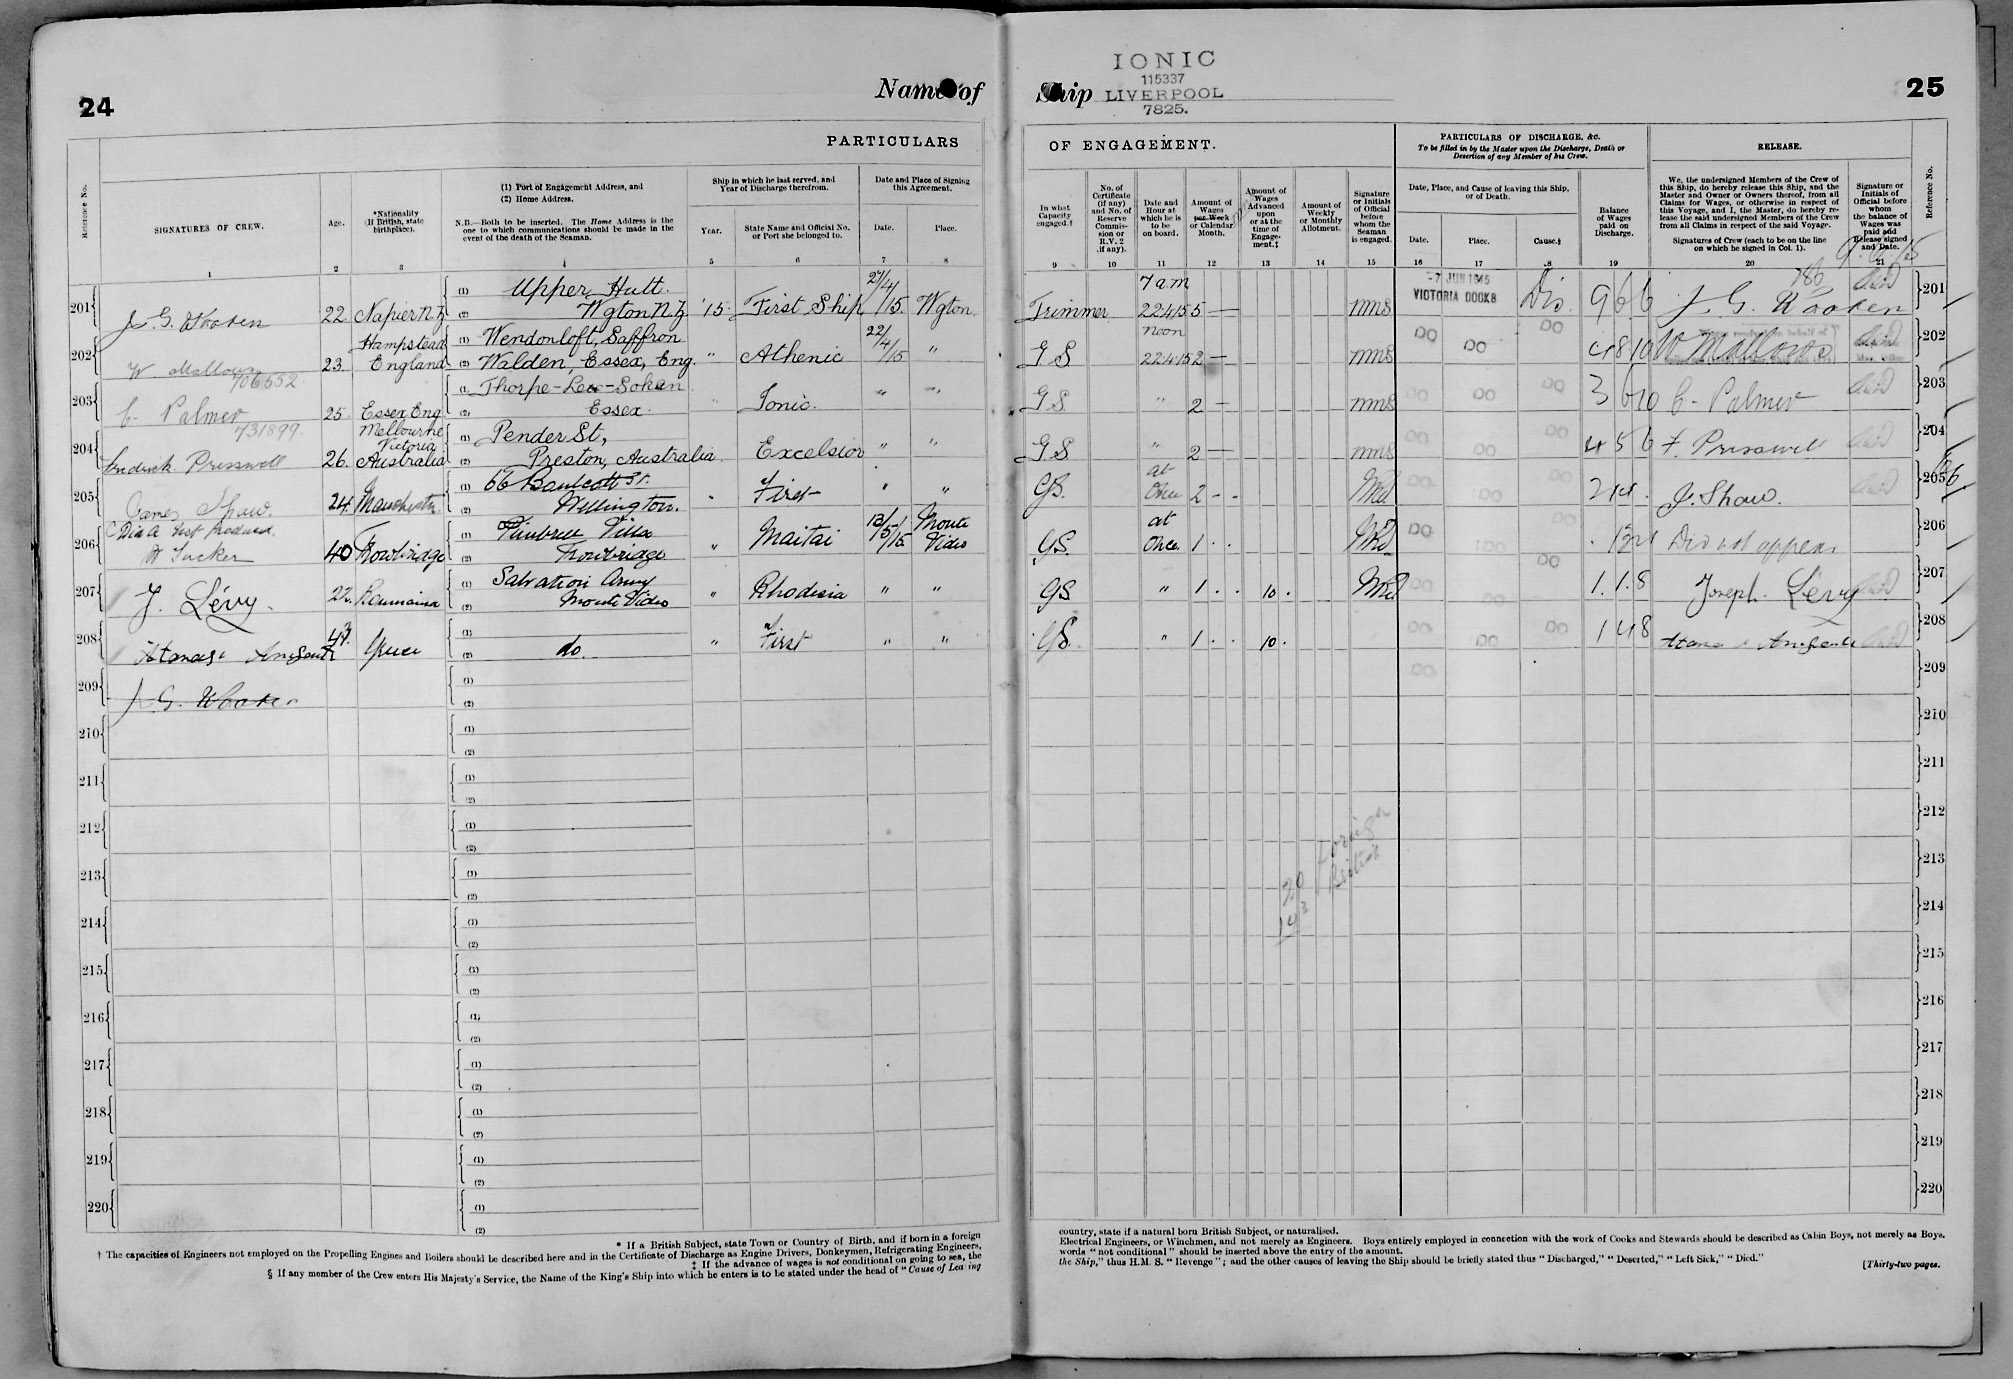 24
Name of
Ship
IONIC
115337
LIVERPOOL
7825.
25
PARTICULARS
OF ENGAGEMENT.
PARTICULARS OF DISCHARGE, &c.
To be filled in by the Master upon the Discharge, Death or
Desertion of any Member of his Crew.
RELEASE.
Reference No.
SIGNATURES OF CREW.
Age.
*Nationality
(If British, state
birthplace).
(1) Port of Engagement Address, and
(2) Home Address.
N.B.—Both to be inserted. The Home Address is the
one to which communications should be made in the
event of the death of the Seaman.
Ship in which he last served, and
Year of Discharge therefrom.
Year.
State Name and Official No.
or Port she belonged to.
Date and Place of Signing
this Agreement.
Date.
Place.
In what
Capacity
engaged.†
No. of
Certificate
(if any)
and No. of
Reserve
Commis-
sion or
R.V. 2
(if any).
Date and
Hour at
which he is
to be
on board.
Amount of
Wages
per Week
or Calendar
Month.
Amount of
Wages
Advanced
upon
or at the
time of
Engage-
ment.‡
Amount of
Weekly
or Monthly
Allotment.
Signature
or Initials
of Official
before
whom the
Seaman
is engaged.
Date, Place, and Cause of leaving this Ship,
or of Death.
Date.
Place.
Cause.§
Balance
of Wages
paid on
Discharge.
We, the undersigned Members of the Crew of
this Ship, do hereby release this Ship, and the
Master and Owner or Owners thereof, from all
Claims for Wages, or otherwise in respect of
this Voyage, and I, the Master, do hereby re-
lease the said undersigned Members of the Crew
from all Claims in respect of the said Voyage.
Signatures of Crew (each to be on the line
on which he signed in Col. 1).
Signature or
Initials of
Official before
whom
the balance of
Wages was
paid and
Release signed
and Date.
Reference No.
1 2 3 4 5 6 7 8 9 10 11 12 13 14 15 16 17 18 19 20 21
201 J. G. Wooken 22 Napier N.Z. (1) Upper Hutt.
(2) Wgton N.Z. '15 First Ship 27/4/15. Wgton. Trimmer 7 am 22 4 15 5 — -7 JUN 1915 VICTORIA DOCKS Dis. 9 6 6 J. G. Wooken 201
202 W. Mallows 23 Hampstead England (1) Wendonloft, Saffron
(2) Walden, Essex, Eng. " Athenic 22/4/15 " G S noon 22 4 15 2 — DO DO DO 4 8 10 W Mallows 202
706552
203 C. Palmer 25 Essex Eng. (1) Thorpe-Le-Soken
(2) Essex. " Ionic. " " G S. " 2 — DO DO DO 3 6 10 C. Palmer 203
731899.
204 Fredrick Presswell 26. Melbourne Victoria Australia (1) Pender St,
(2) Preston, Australia. Excelsior " " G S " 2 — DO DO DO 4 5 6 F. Presswell 204
205 James Shaw. 24. Manchester (1) 66 Boulcott St.
(2) Wellington. " First " " GS. at Once 2 - - DO DO DO J. Shaw. 205
206 Dis A Not Produced.
H Tucker 40 Trowbridge (1) Villa
(2) Trowbridge " Maitai 13/5/15. Monte Video GS. at Once. 1 . . DO DO DO Did not appear 206
207 J. Lévy. 22. Roumania (1) Salvation Army
(2) Monte Video " Rhodesia " " GS " 1 . . 10 . DO DO DO 1. 1. 8 Joseph. Levy 207
208 43 Greece (1)
(2) do. " First " " GS. " 1 . . 10 . DO DO DO 1 4 8 208
209 J. G. Wooken (1)
(2) DO 209
210 (1)
(2) 210
211 (1)
(2) 211
212 (1)
(2) 212
213 (1)
(2) 213
214 (1)
(2) 214
215 (1)
(2) 215
216 (1)
(2) 216
217 (1)
(2) 217
218 (1)
(2) 218
219 (1)
(2) 219
220 (1)
(2) 220
20 Foreign
143 British
* If a British Subject, state Town or Country of Birth, and if born in a foreign
† The capacities of Engineers not employed on the Propelling Engines and Boilers should be described here and in the Certificate of Discharge as Engine Drivers, Donkeymen, Refrigerating Engineers,
‡ If the advance of wages is not conditional on going to sea, the
§ If any member of the Crew enters His Majesty's Service, the Name of the King's Ship into which he enters is to be stated under the head of "Cause of Leaving
country, state if a natural born British Subject, or naturalised.
Electrical Engineers, or Winchmen, and not merely as Engineers. Boys entirely employed in connection with the work of Cooks and Stewards should be described as Cabin Boys, not merely as Boys.
words "not conditional" should be inserted above the entry of the amount.
the Ship," thus H.M. S. "Revenge"; and the other causes of leaving the Ship should be briefly stated thus "Discharged," "Deserted," "Left Sick," "Died."
[Thirty-two pages.